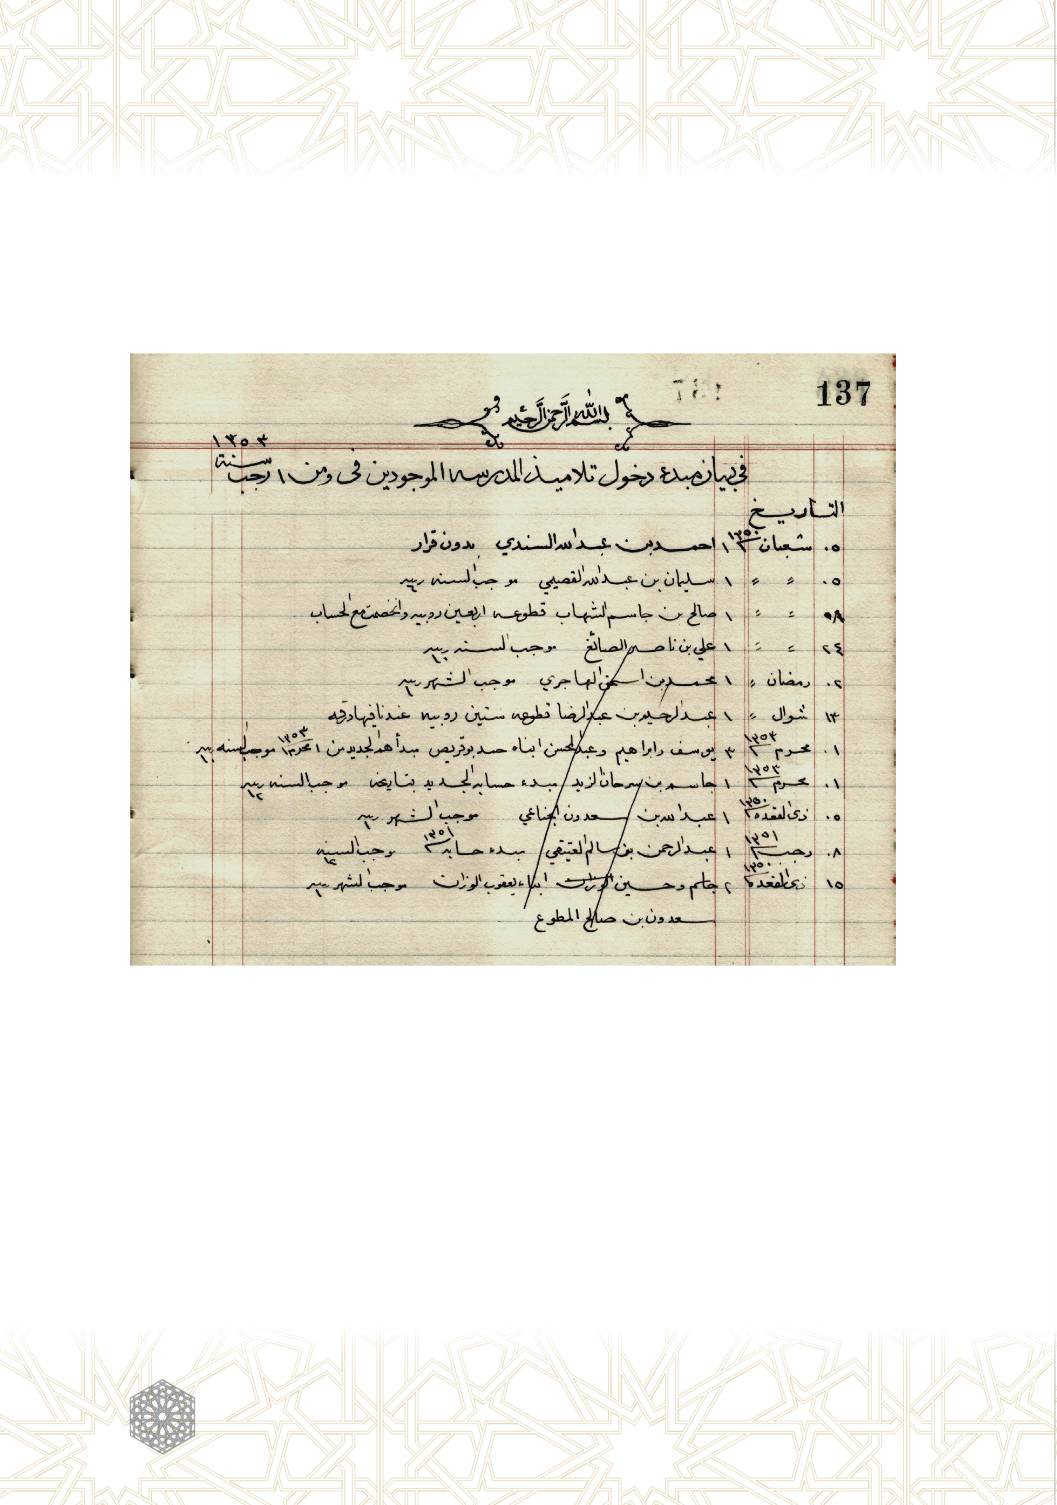 137
بسم الله الرحمن الرحيم
في بيان مبدء دخول تلاميذ المدرسه الموجودين في ومن ١ رجب سنة ١٣٥٣
التاريخ
٠٥ شعبان ١٣٥٠ ١ احمد بن عبدالله السندي بدون قرار
٠٥ " " ١ سليمان بن عبدالله القصيمي موجب السنه ربيه
" " ١ صالح بن جاسم الشهاب قطوعه اربعين روبيه وانخصمت مع الحساب
٢٤ " " ١ علي بن ناصر الصائغ موجب السنه ربيه
٠٢ رمضان " ١ محمد بن اسمعيل الهاجري موجب الشهر ربيه
١٣ شوال " ١ عبدالرحيم بن عبدالرضا قطوعه ستين روبيه عندنا فيها ورقه
٠١ محرم ١٣٥٣ ٣ يوسف وابراهيم وعبدالمحسن ابناء حمد بوقريص مبدأهم الجديد من ١ محرم ١٣٥٣ موجب السنه ربيه
٠١ محرم ١٣٥٣ ١ جاسم بن سرحان الزيد مبدء حسابه الجديد بتاريخه موجب السنه ربيه ١٢
٠٥ ذى القعده ١٣٥٠ ١ عبدالله بن سعدون الجناعي موجب الشهر ربيه
٠٨ رجب ١٣٥١ ١ عبدالرحمن بن سالم العتيقي مبدء حسابه ١٣٥١ موجب السنه
١٥ ذى القعده ١٣٥٠ ٢ جاسم وحسين ابناء يعقوب الوزان موجب الشهر ربيه
سعدون بن صالح المطوع